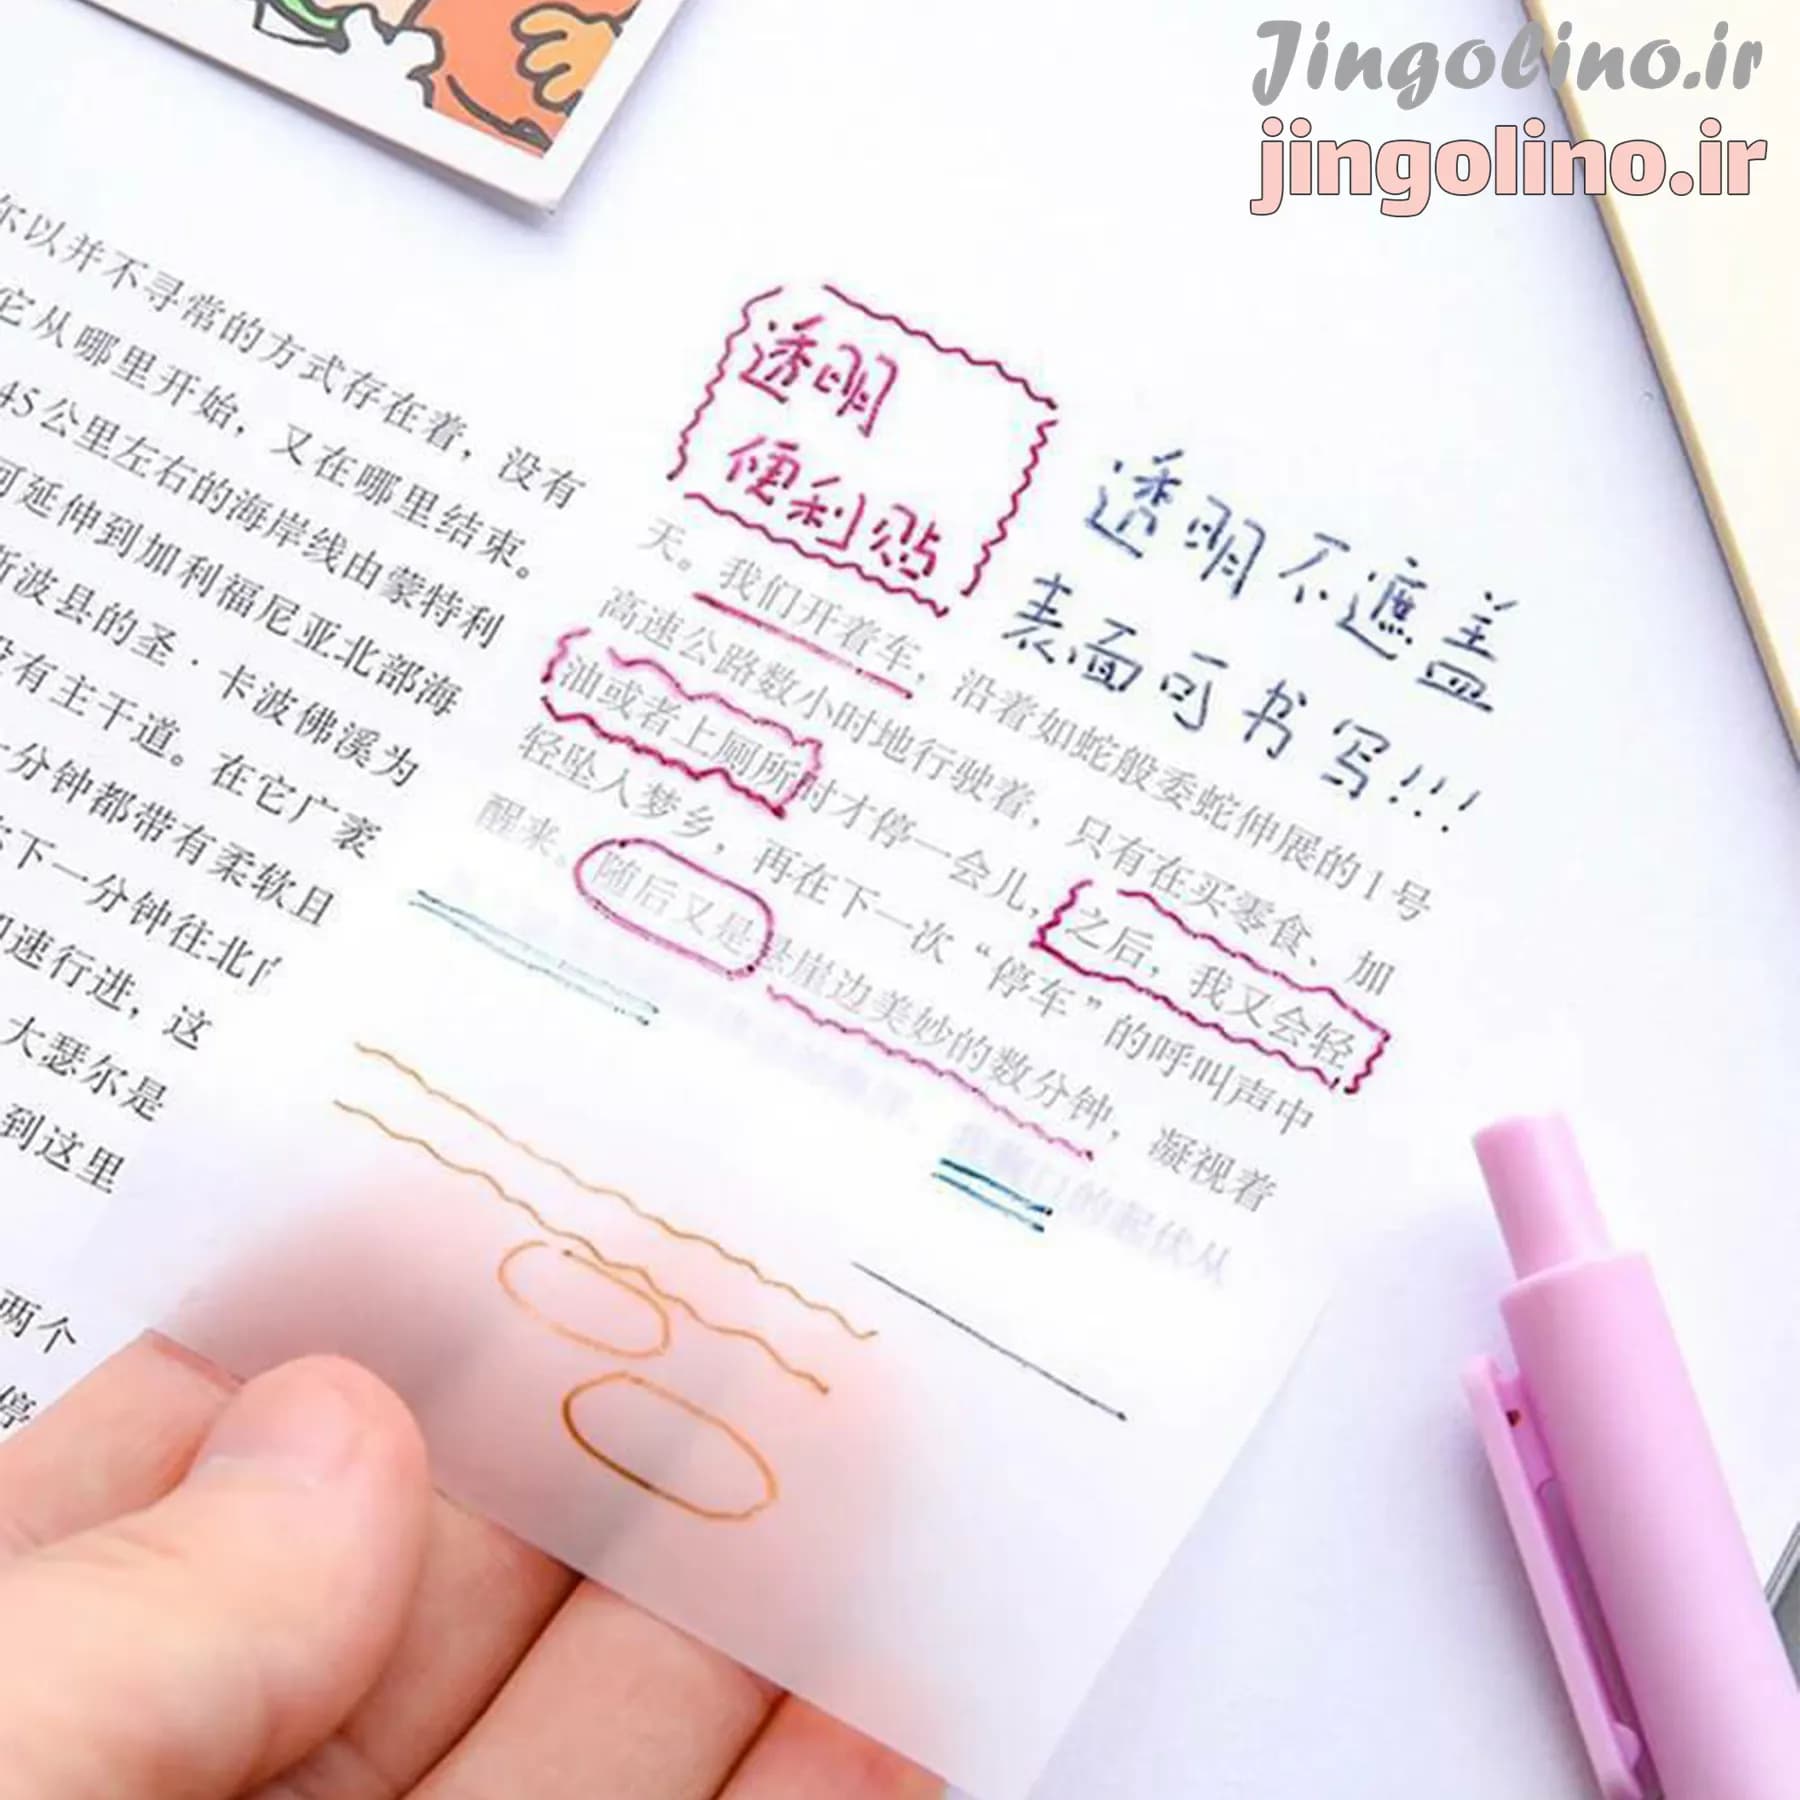 Jingolino.ir
jingolino.ir
尔以并不寻常的方式存在着，没有
它从哪里开始，又在哪里结束。
45公里左右的海岸线由蒙特利
可延伸到加利福尼亚北部海
斯波县的圣·卡波佛溪为
没有主干道。在它广袤
一分钟都带有柔软且
下一分钟往北
速行进，这
大瑟尔是
到这里
两个
停
透明
便利贴
透明不遮盖
表面可书写!!!
天。我们开着车，沿着如蛇般委蛇伸展的1号
高速公路数小时地行驶着，只有在买零食、加
油或者上厕所时才停一会儿，之后，我又会轻
轻坠入梦乡，再在下一次“停车”的呼叫声中
醒来。随后又是悬崖边美妙的数分钟，凝视着
口的起伏从